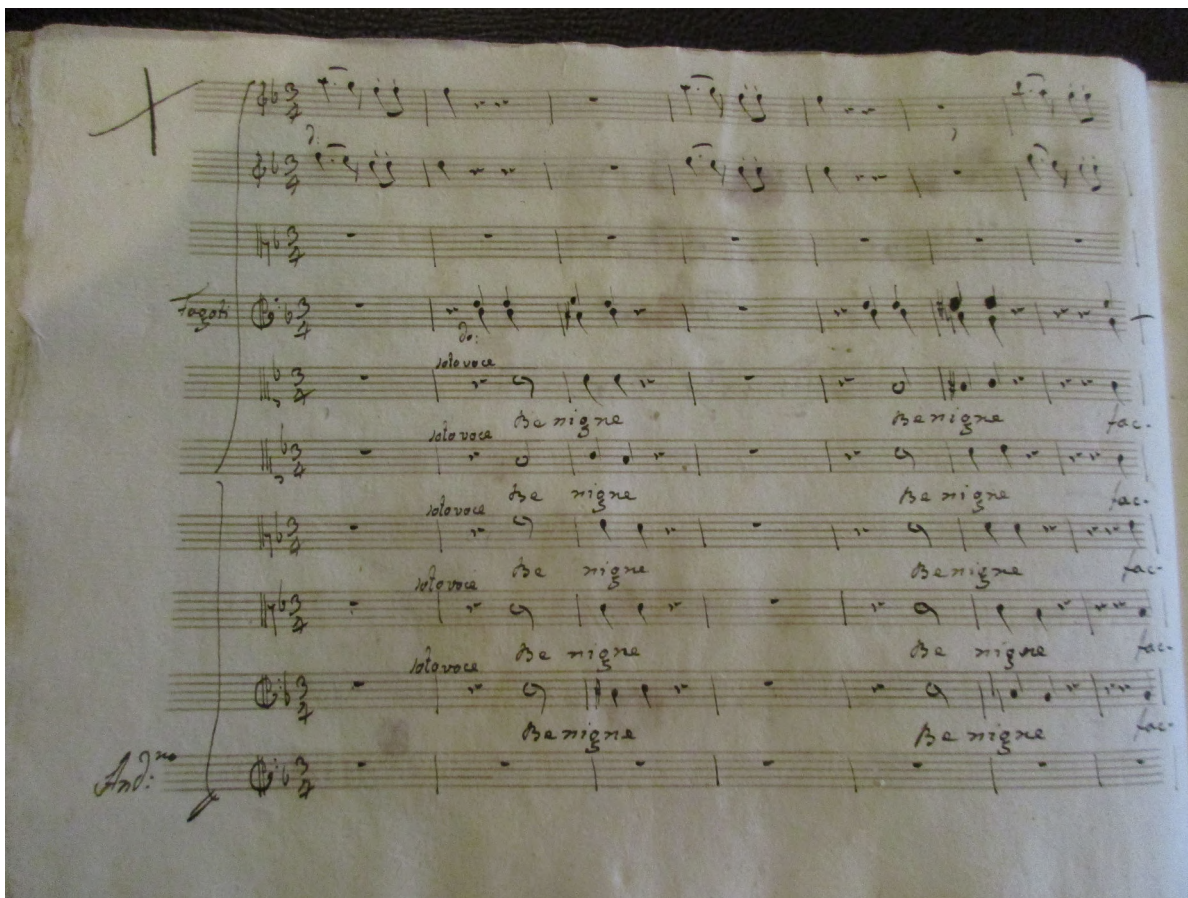 3/4
3/4
3/4
Fagoti 3/4
do:
soto voce
3/4
Benigne Benigne fac-
soto voce
3/4
Be nigne Be nigne fac-
soto voce
3/4
Be nigne Benigne fac-
soto voce
3/4
Be nigne Be nigne fac-
soto voce
3/4
Benigne Be nigne fac-
And:no 3/4